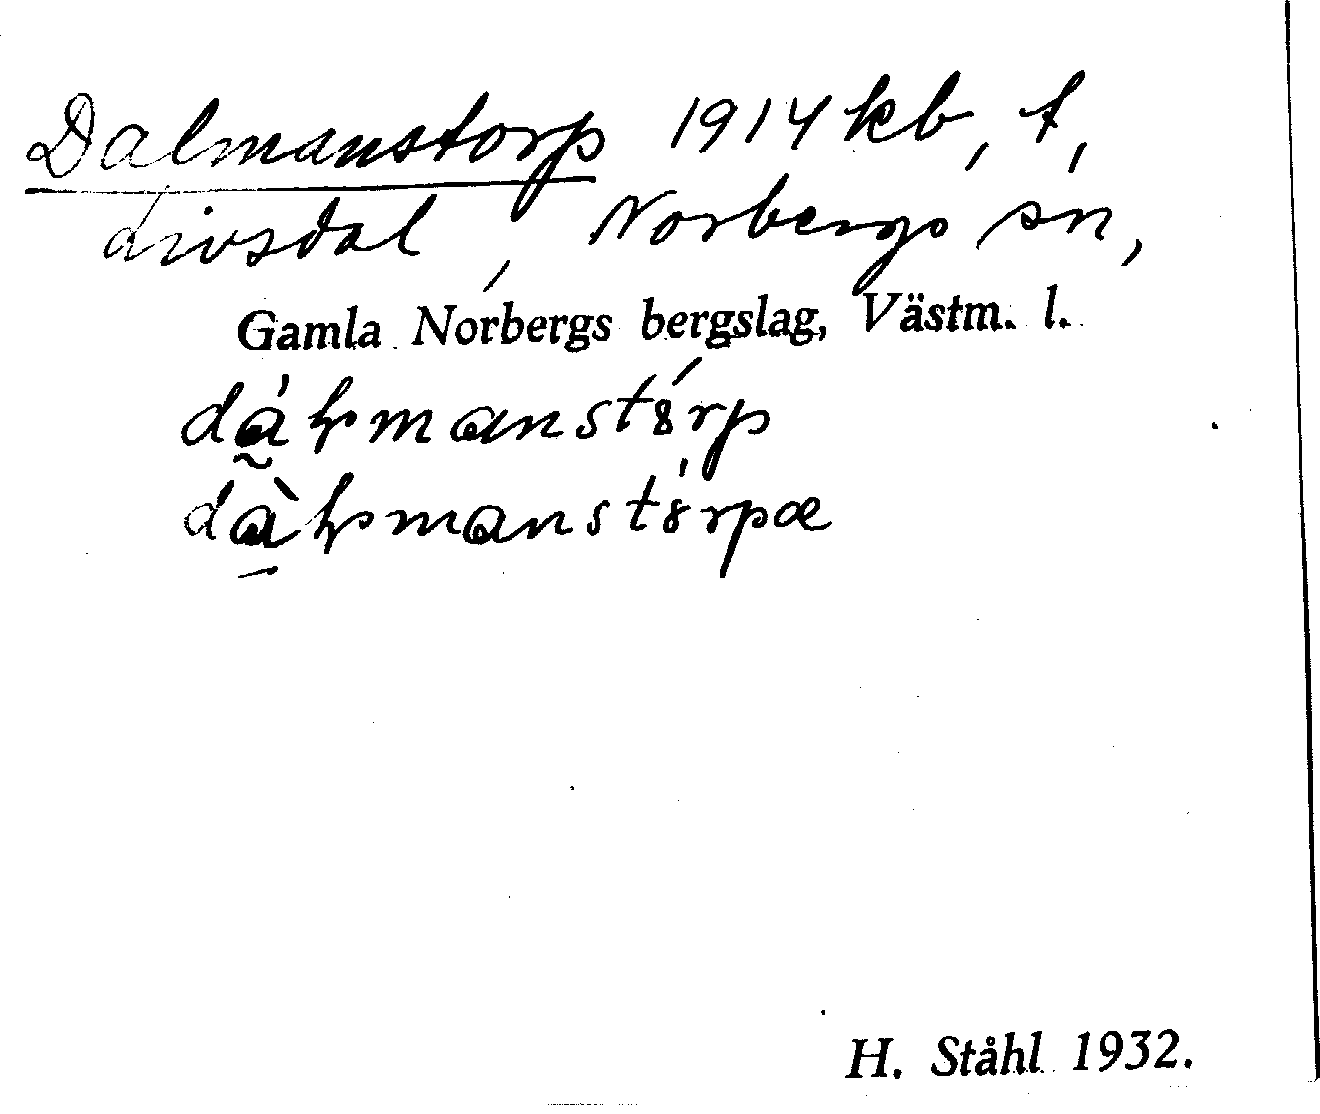 Dalmanstorp 1914 kb, t,
Livsdal, Norbergs sn,
Gamla Norbergs bergslag, Västm. l.
H. Ståhl 1932.